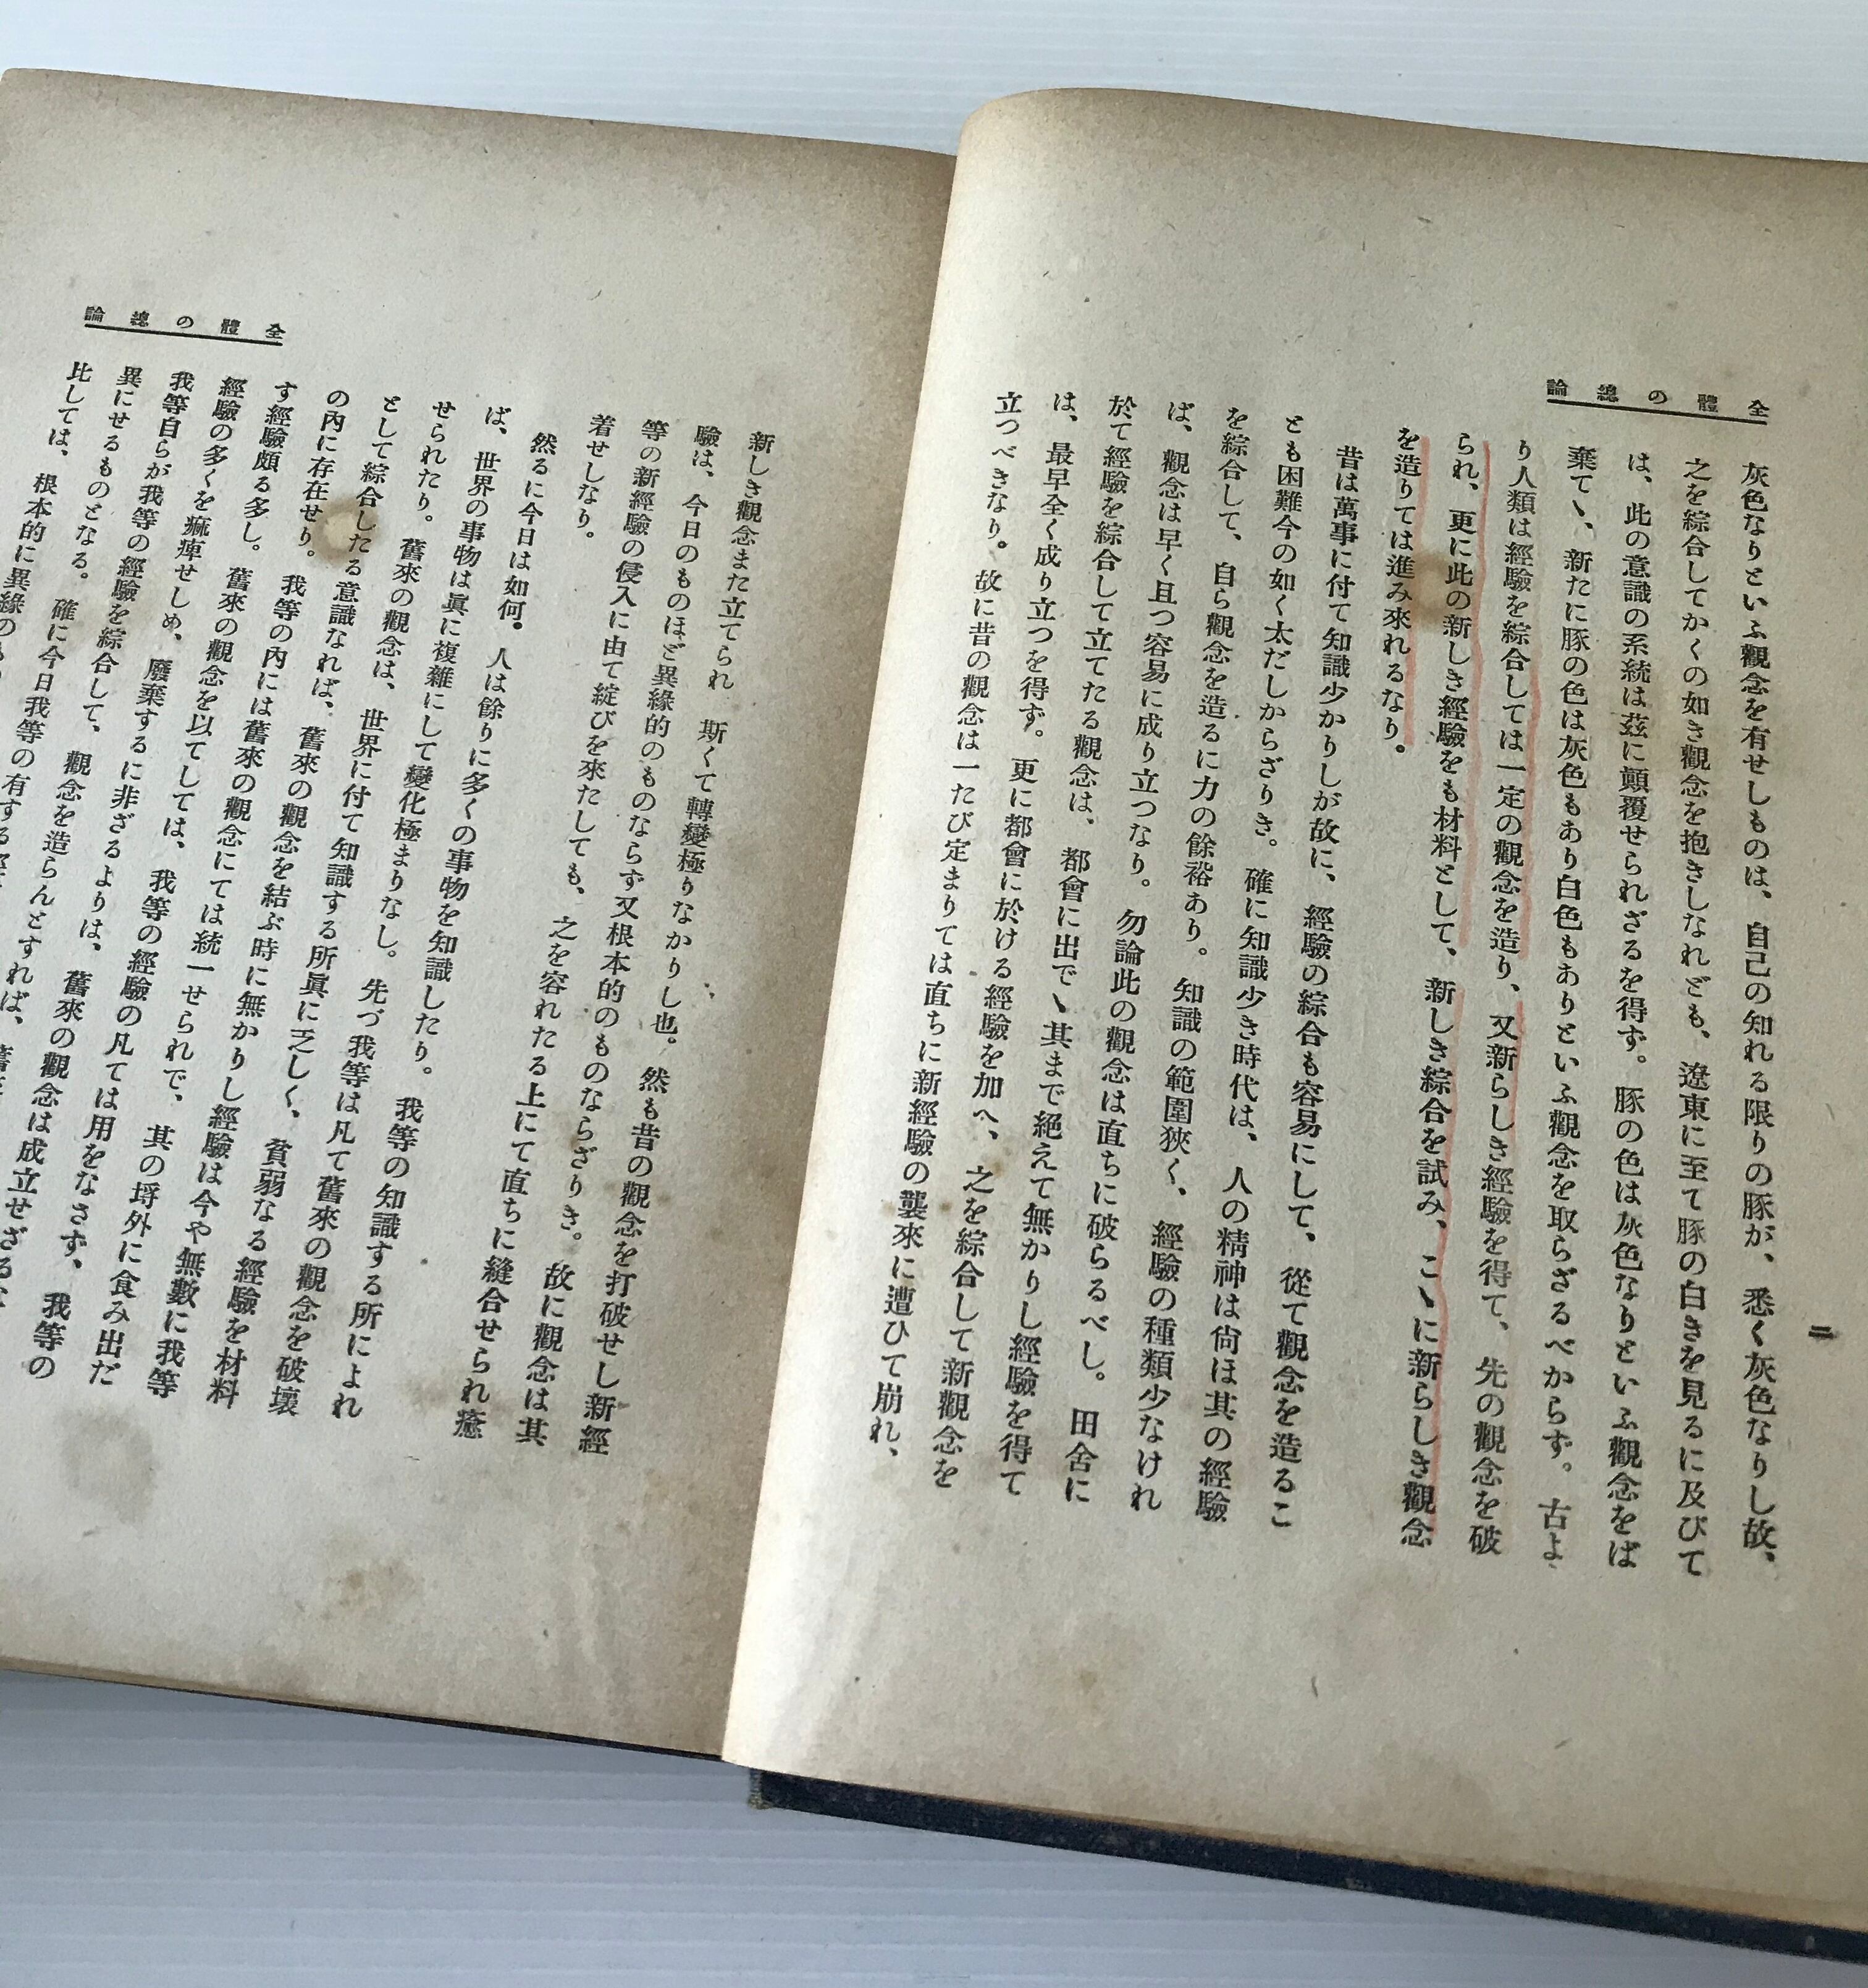 全體の總論
二
灰色なりといふ觀念を有せしものは、自己の知れる限りの豚が、悉く灰色なりし故、
之を綜合してかくの如き觀念を抱きしなれども、遼東に至て豚の白きを見るに及びて
は、此の意識の系統は玆に顛覆せられざるを得ず。豚の色は灰色なりといふ觀念をば
棄てゝ、新たに豚の色は灰色もあり白色もありといふ觀念を取らざるべからず。古よ
り人類は經驗を綜合しては一定の觀念を造り、又新らしき經驗を得て、先の觀念を破
られ、更に此の新しき經驗をも材料として、新しき綜合を試み、こゝに新らしき觀念
を造りては進み來れるなり。
昔は萬事に付て知識少かりしが故に、經驗の綜合も容易にして、從て觀念を造るこ
とも困難今の如く太だしからざりき。確に知識少き時代は、人の精神は尙ほ其の經驗
を綜合して、自ら觀念を造るに力の餘裕あり。知識の範圍狹く、經驗の種類少なけれ
ば、觀念は早く且つ容易に成り立つなり。勿論此の觀念は直ちに破らるべし。田舍に
於て經驗を綜合して立てたる觀念は、都會に出でゝ其まで絕えて無かりし經驗を得て
は、最早全く成り立つを得ず。更に都會に於ける經驗を加へ、之を綜合して新觀念を
立つべきなり。故に昔の觀念は一たび定まりては直ちに新經驗の襲來に遭ひて崩れ、
全體の總論
新しき觀念また立てられ 斯くて轉變極りなかりし也。然も昔の觀念を打破せし新經
驗は、今日のものほど異緣的のものならず又根本的のものならざりき。故に觀念は其
等の新經驗の侵入に由て綻びを來たしても、之を容れたる上にて直ちに縫合せられ癒
着せしなり。
然るに今日は如何。人は餘りに多くの事物を知識したり。我等の知識する所によれ
ば、世界の事物は眞に複雜にして變化極まりなし。先づ我等は凡て舊來の觀念を破壞
せられたり。舊來の觀念は、世界に付て知識する所眞に乏しく、貧弱なる經驗を材料
として綜合したる意識なれば、舊來の觀念を結ぶ時に無かりし經驗は今や無數に我等
の內に存在せり。我等の內には舊來の觀念にては統一せられで、其の埒外に食み出だ
す經驗頗る多し。舊來の觀念を以てしては、我等の經驗の凡ては用をなさず、我等の
經驗の多くを痲痺せしめ、廢棄するに非ざるよりは、舊來の觀念は成立せざる
我等自らが我等の經驗を綜合して、觀念を造らんとすれば、
異にせるものとなる。確に今日我等の有する
比しては、根本的に異緣の